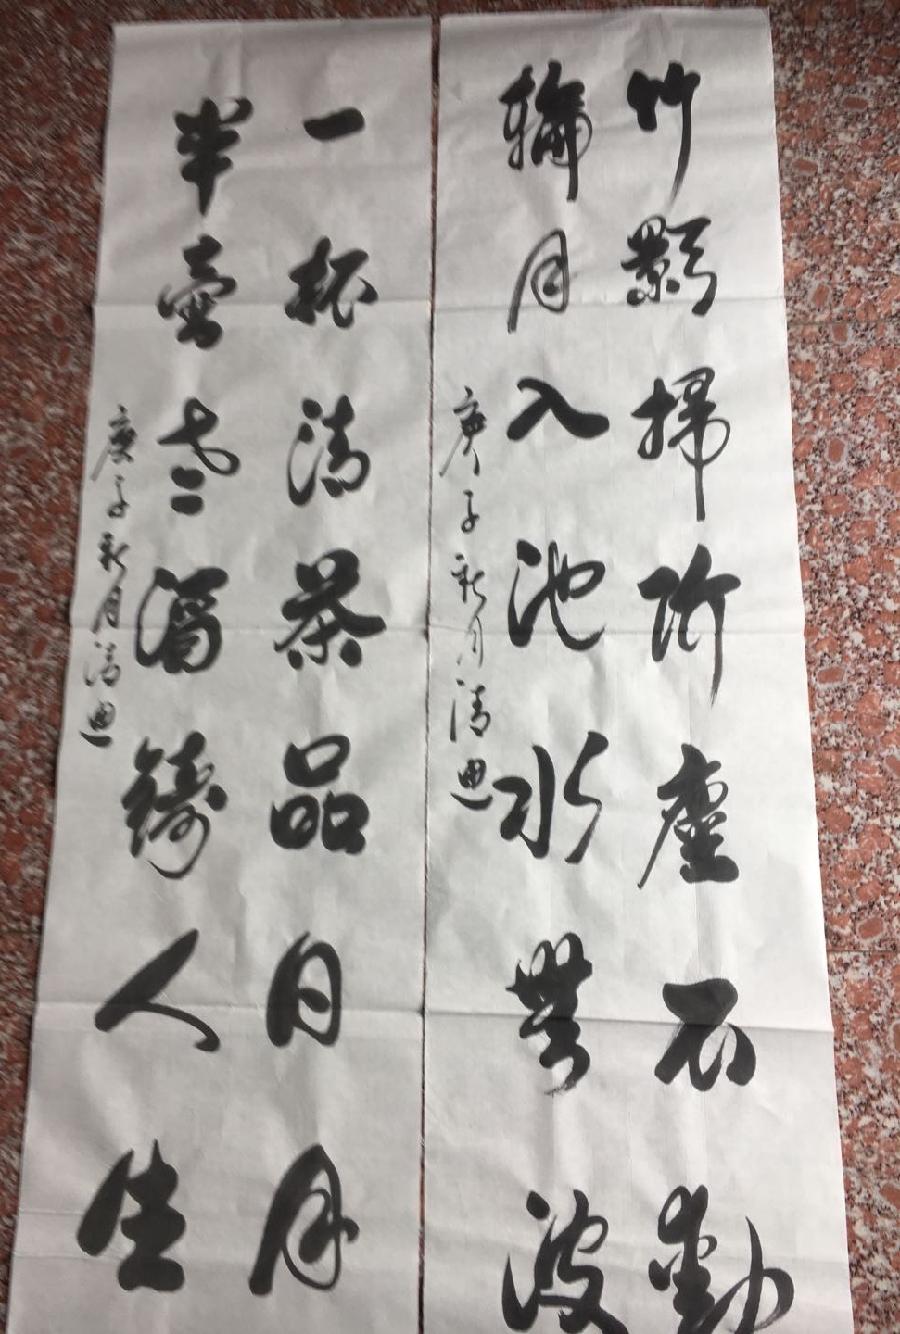 竹影掃阶塵不動
輪月入池水無波
庚子秋月清
一杯清茶品日月
半壺老酒鑄人生
庚子秋月清